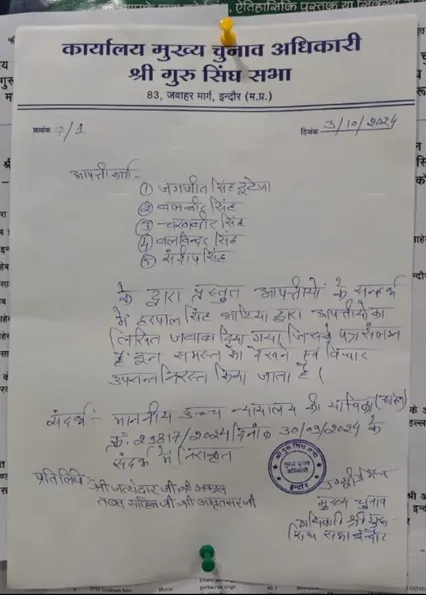 ऐतिहासिक पुस्तक या
कार्यालय मुख्य चुनाव अधिकारी
श्री गुरु सिंघ सभा
83, जवाहर मार्ग, इन्दौर (म.प्र.)
क्रमांक 7/1 दिनांक 3/10/2024
आपत्तीकर्ता-
① जगजीत सिंह
② सिंह
③ सिंह
④ बलविन्दर सिंह
⑤ संदीप सिंह
के द्वारा प्रस्तुत आपत्तीयों के सन्दर्भ
में हरपाल सिंह भाटिया द्वारा आपत्तीयो का
लिखित जवाब दिया गया, जिसके पत्र संलग्न
है इन समस्त को देखने एवं विचार
उपरान्त निरस्त किया जाता है।
संदर्भ:- माननीय उच्च न्यायालय की याचिका
क्र. 29817/2024 दिनांक 30/09/2024 के
संदर्भ में निराकृत
प्रतिलिपि:- श्री जत्थेदार जी श्री अकाल
तख्त साहिब जी श्री अमृतसर जी
श्री गुरु सिंघ सभा
मुख्य चुनाव अधिकारी
इन्दौर
मुख्य चुनाव
अधिकारी श्री गुरु
सिंघ सभा इन्दौर